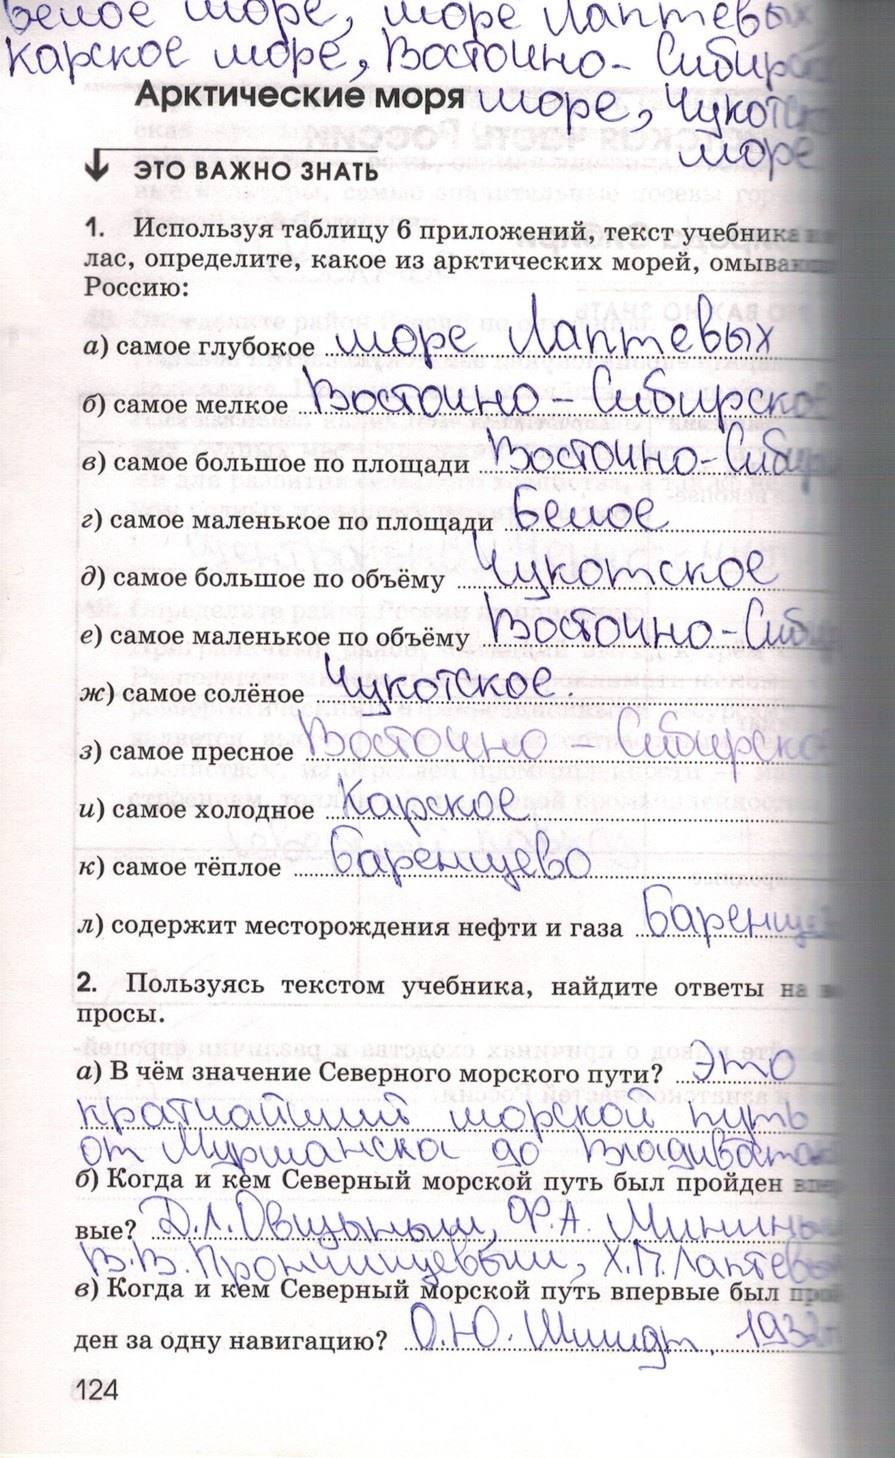 Белое море, море Лаптевых
Карское море, Восточно-Сибирс
Арктические моря море, Чукотс
море
ЭТО ВАЖНО ЗНАТЬ
1. Используя таблицу 6 приложений, текст учебника
лас, определите, какое из арктических морей, омываю
Россию:
а) самое глубокое море Лаптевых
б) самое мелкое Восточно-Сибирско
в) самое большое по площади Восточно-Сибир
г) самое маленькое по площади Белое
д) самое большое по объёму Чукотское
е) самое маленькое по объёму Восточно-Сиби
ж) самое солёное Чукотское.
з) самое пресное Восточно-Сибирско
и) самое холодное Карское
к) самое тёплое Баренцево
л) содержит месторождения нефти и газа Баренце
2. Пользуясь текстом учебника, найдите ответы на во
просы.
а) В чём значение Северного морского пути? Это
кратчайший морской путь
от Мурманска до Владивосток
б) Когда и кем Северный морской путь был пройден впер
вые? Д.Л.Овцыным, Ф.А. Минины
В.В.Прончищевым, Х.П.Лаптевы
в) Когда и кем Северный морской путь впервые был прой
ден за одну навигацию? О.Ю. Шмидт, 1932г
124